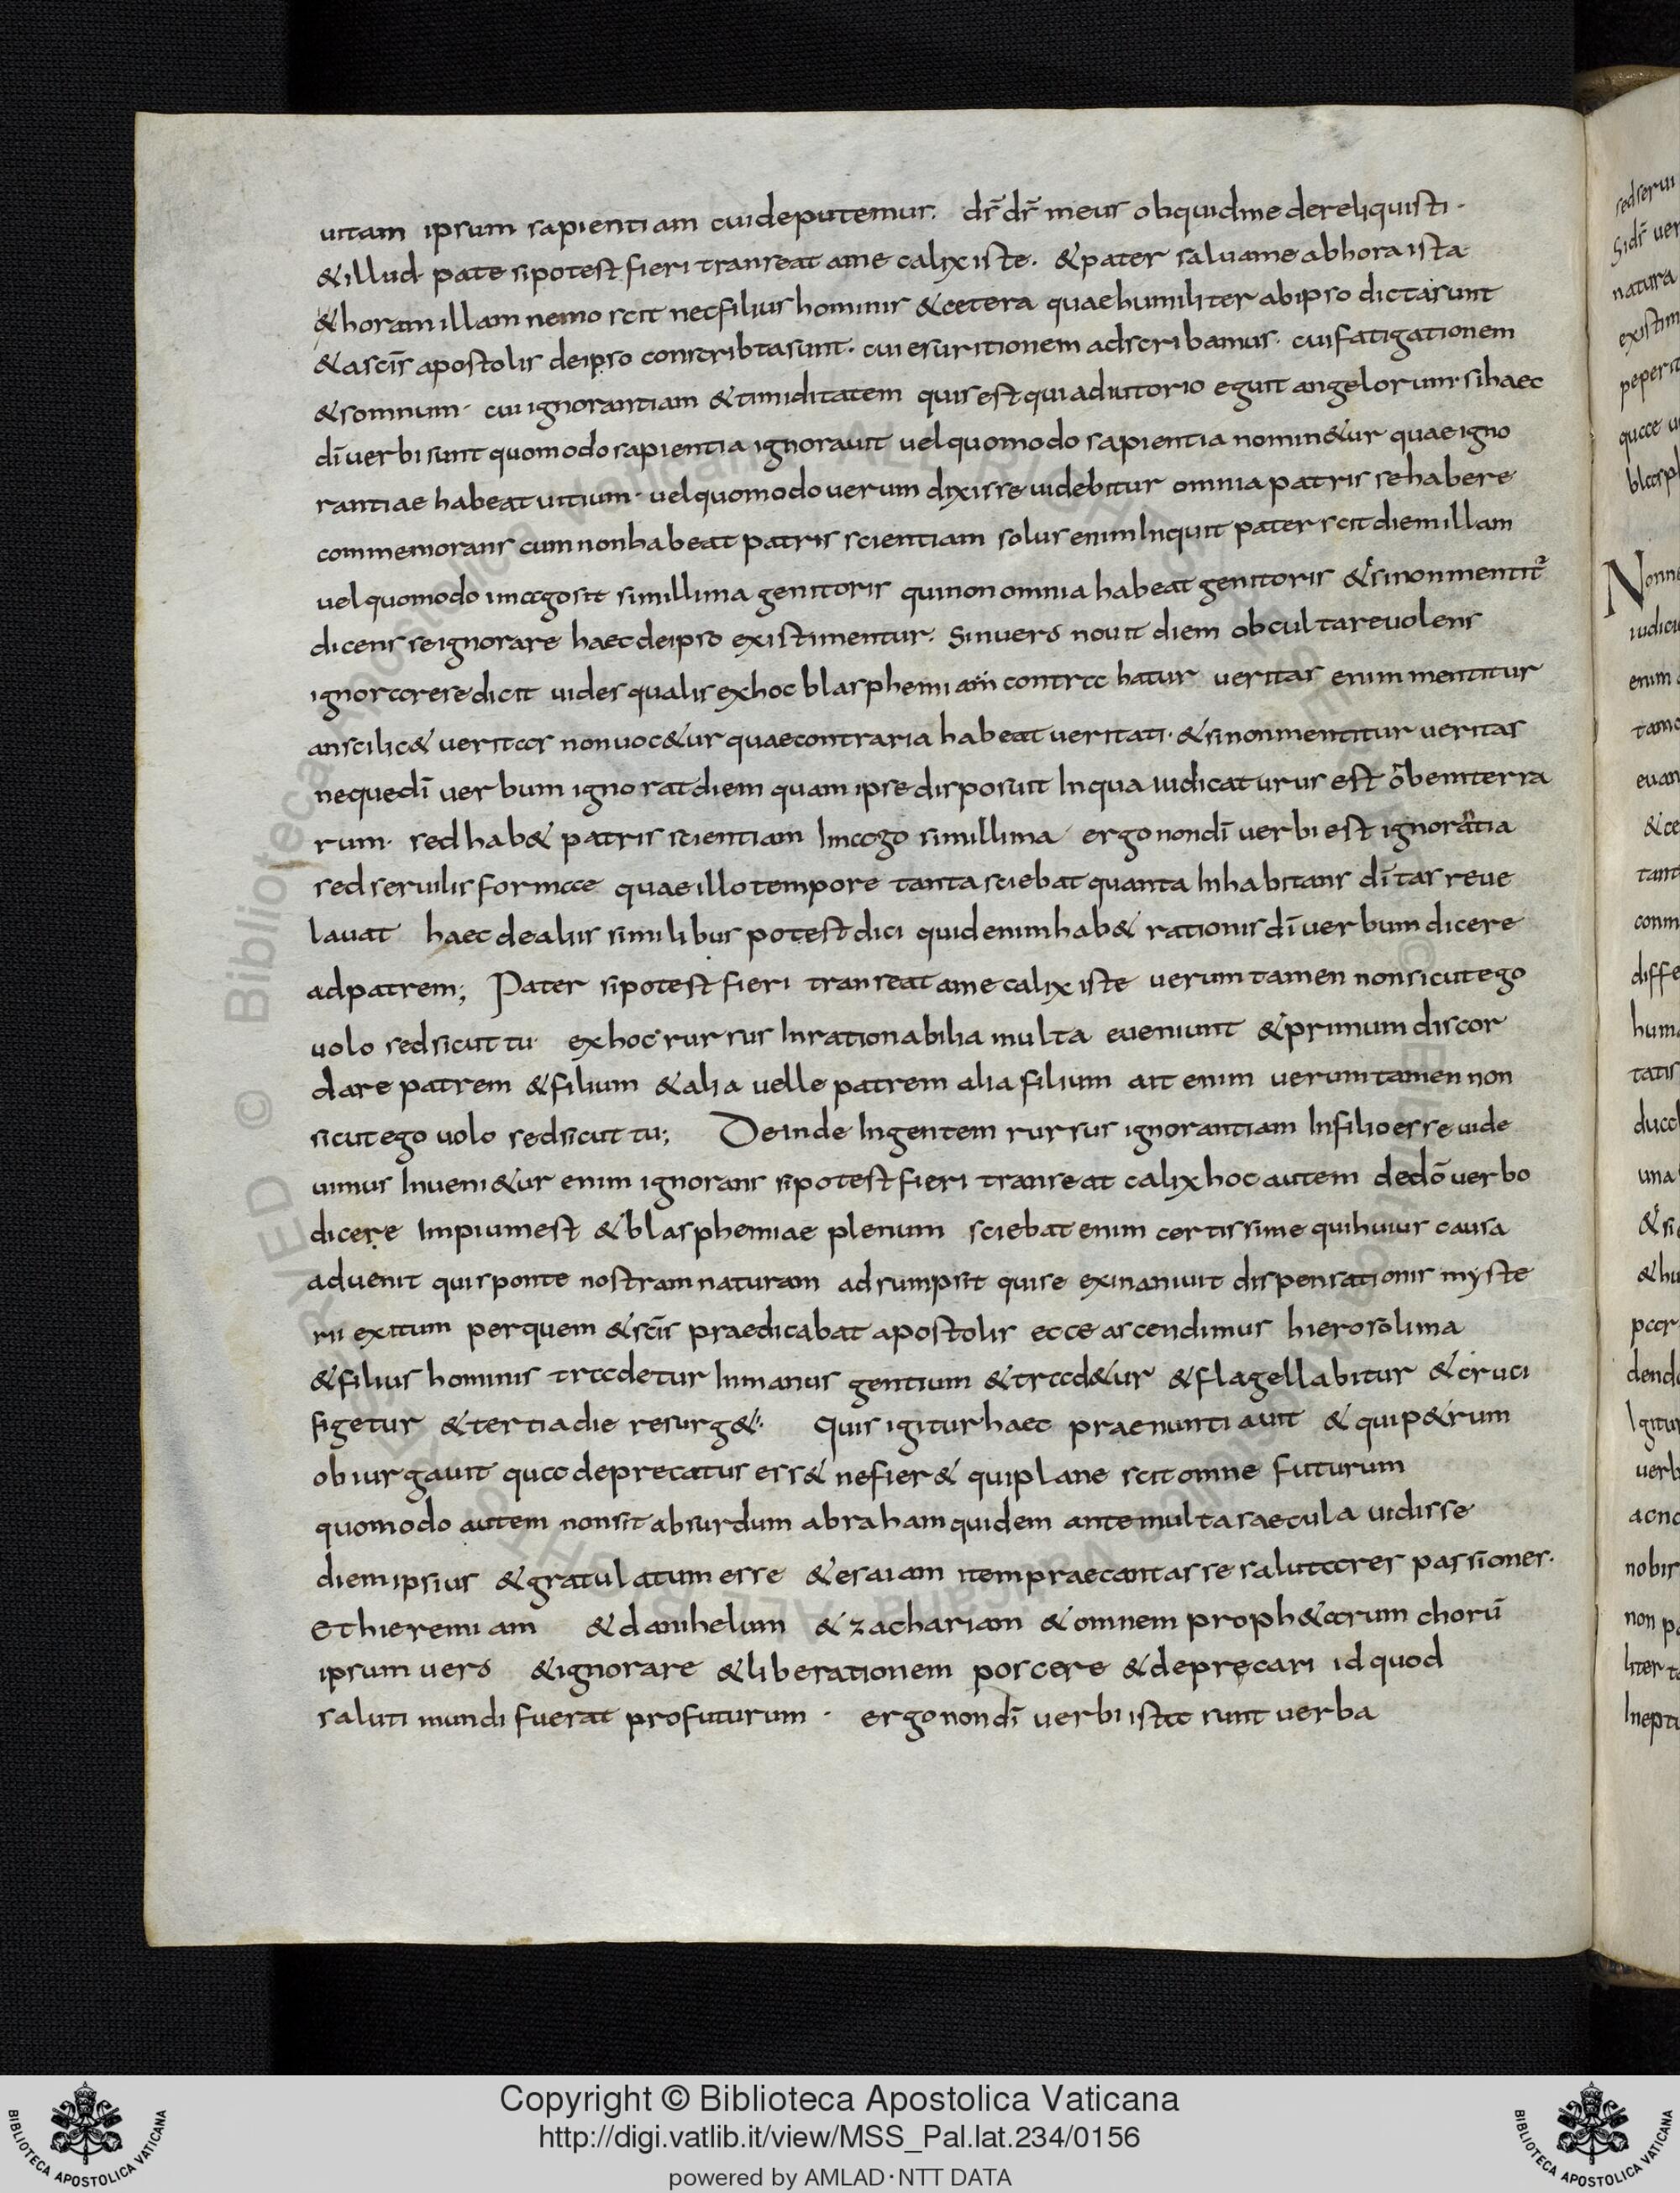 uitam ipsum sapientiam cuideputemus. ds̄ ds̄ meus obquidme dereliquisti ·
&illud· pate sipotest fieri transeat ame calix iste. &pater saluame abhora ista·
&horam illam nemo scit necfilius hominis &cetera quaehumiliter abipso dictasunt
&ascīs apostolis deipso conscribtasunt. cui esuritionem adscribamus. cuifatigationem
&somnum· cui ignorantiam &timiditatem quis est qui adiutorio eguit angelorum· sihaec
dī uerbi sunt quomodo sapientia ignorauit uel quomodo sapientia nomin&ur quae igno
rantiae habeat uitium· uel quomodo uerum dixisse uidebitur omnia patris sehabere
commemorans cum nonhabeat patris scientiam solus enim Inquit pater scit diem illam
uel quomodo imago sit simillima genitoris qui non omnia habeat genitoris &sinon mentit᷑
dicens seignorare haec deipso existimentur. Sinuero nouit diem obcultare uolens
ignorarese dicit uides qualis exhoc blasphemiam contrahatur ueritas enim mentitur
anscilic& ueritas non uoc&ur quaecontraria habeat ueritati· &sinon mentitur ueritas
nequedī uerbum ignorat diem quam ipse disposuit Inqua iudicaturus est orbem terra
rum· sed hab& patris scientiam Imago simillima ergo nondī uerbi est ignorātia
sed seruilis formae quae illo tempore tanta sciebat quanta Inhabitans dī tas reue
lauat haec dealiis similibus potest dici quid enim hab& rationis dī uerbum dicere
adpatrem; Pater sipotest fieri transeat ame calix iste uerum tamen non sicut ego
uolo sed sicut tu· exhoc rursus Inrationabilia multa eueniunt &primum discor
dare patrem &filium &alia uelle patrem alia filium ait enim uerum tamen non
sicut ego uolo sed sicut tu; Deinde Ingentem rursus ignorantiam Infilio esse uide
uimus Inueni&ur enim ignorans sipotest fieri transeat calix hoc autem dedō uerbo
dicere Impium est &blasphemiae plenum sciebat enim certissime quihuius causa
aduenit qui sponte nostram naturam adsumpsit quise exinaniuit dispensationis myste
rii exitum perquem &scīs praedicabat apostolis ecce ascendimus hierosolima
&filius hominis tradetur Inmanus gentium &trad&ur &flagellabitur &cruci
figetur &tertia die resurg&; Quis igitur haec praenuntiauit &quip&rum
obiurgauit qua deprecatus ess& nefier& quiplane scit omne futurum
quomodo autem non sit absurdum abraham quidem ante multa saecula uidisse
diem ipsius &gratulatum esse &esaiam item praecantasse salutares passiones.
Ethieremiam &danihelum &zachariam &omnem proph&arum chorū
ipsum uero &ignorare &liberationem poscere &deprecari id quod
saluti mundi fuerat profuturum · ergo nondī uerbi ista sunt uerba
Copyright © Biblioteca Apostolica Vaticana
http://digi.vatlib.it/view/MSS_Pal.lat.234/0156
powered by AMLAD·NTT DATA
BIBLIOTECA APOSTOLICA VATICANA
BIBLIOTECA APOSTOLICA VATICANA